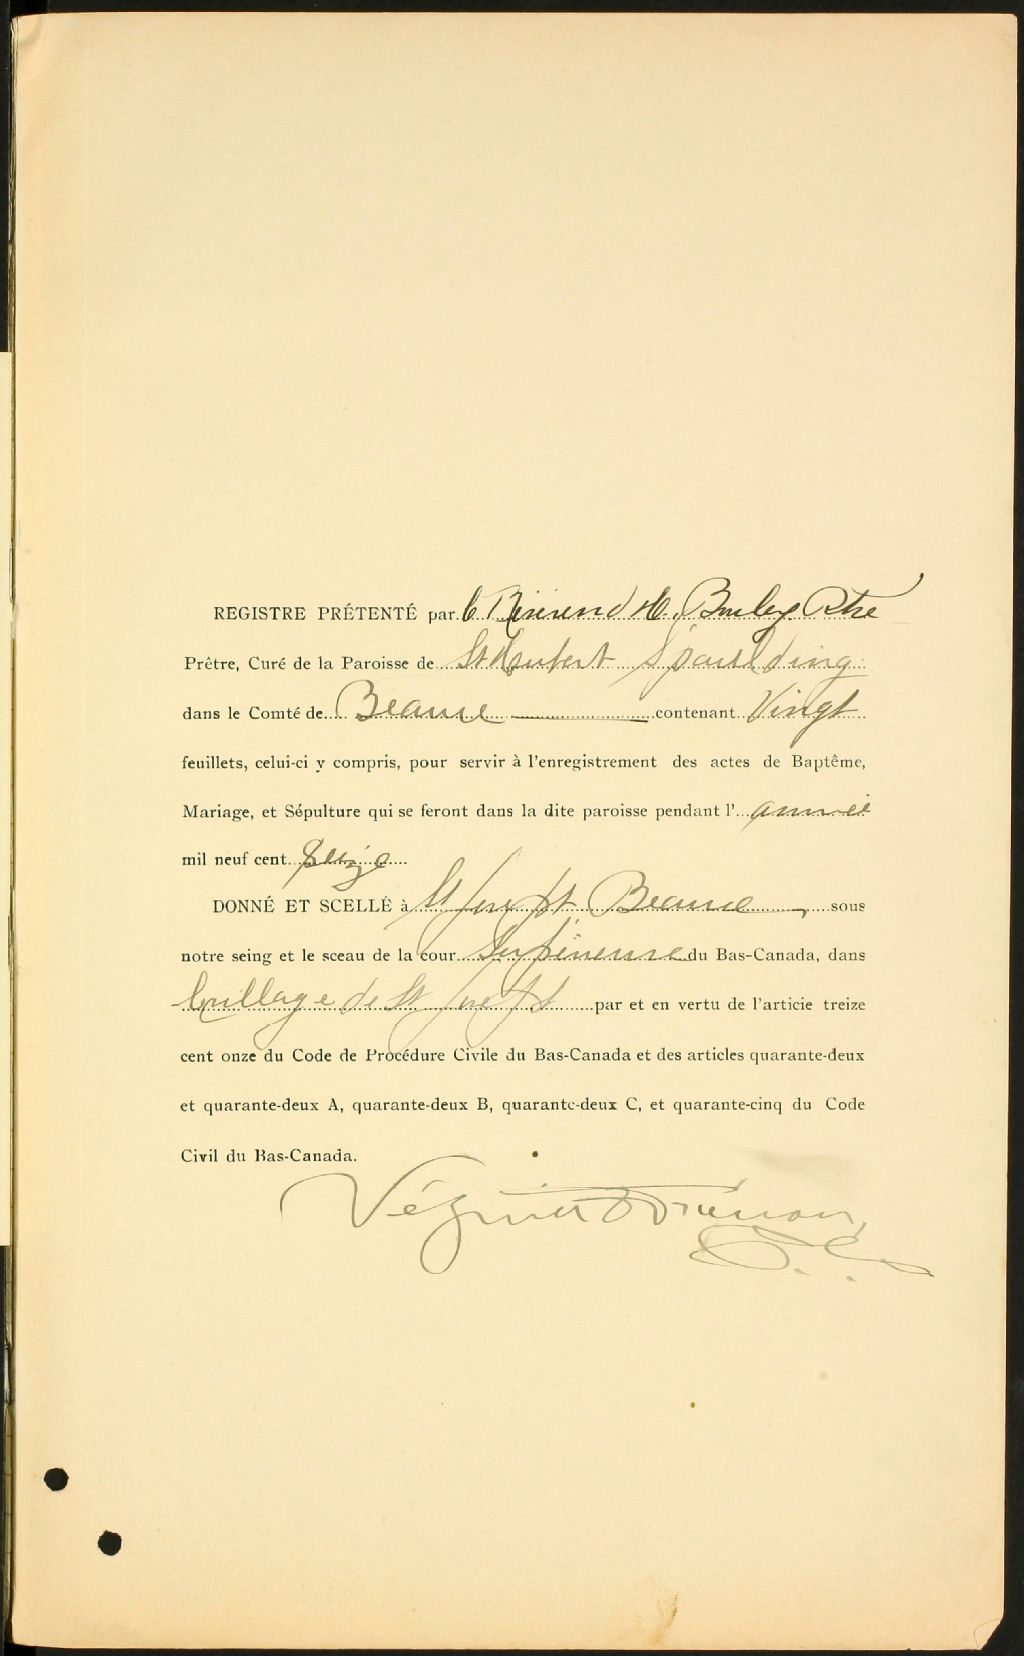 REGISTRE PRÉTENTÉ par le Révérend H. Ptre
Prêtre, Curé de la Paroisse de St Hubert Spaulding
dans le Comté de Beauce contenant Vingt
feuillets, celui-ci y compris, pour servir à l'enregistrement des actes de Baptême,
Mariage, et Sépulture qui se feront dans la dite paroisse pendant l'année
mil neuf cent seize
DONNÉ ET SCELLÉ à St Joseph Beauce, sous
notre seing et le sceau de la cour Supérieure du Bas-Canada, dans
le village de St Joseph par et en vertu de l'articie treize
cent onze du Code de Procédure Civile du Bas-Canada et des articles quarante-deux
et quarante-deux A, quarante-deux B, quarante-deux C, et quarante-cinq du Code
Civil du Bas-Canada.
Vézina &